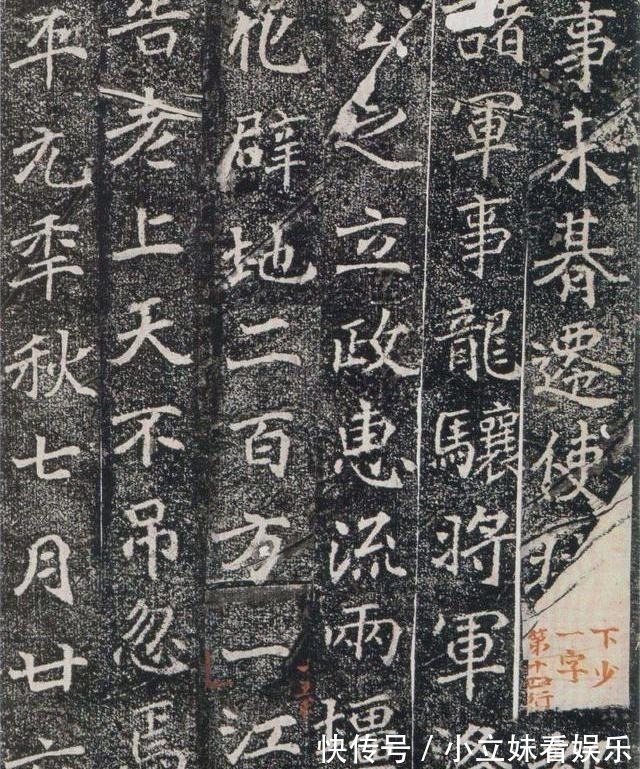 事未朞遷使
諸軍事龍驤將軍
公之立政惠流兩
化辟地二百方一江
告老上天不吊忽焉
平元年秋七月廿六
下少
一字
第十四行
快传号/小立妹看娱乐